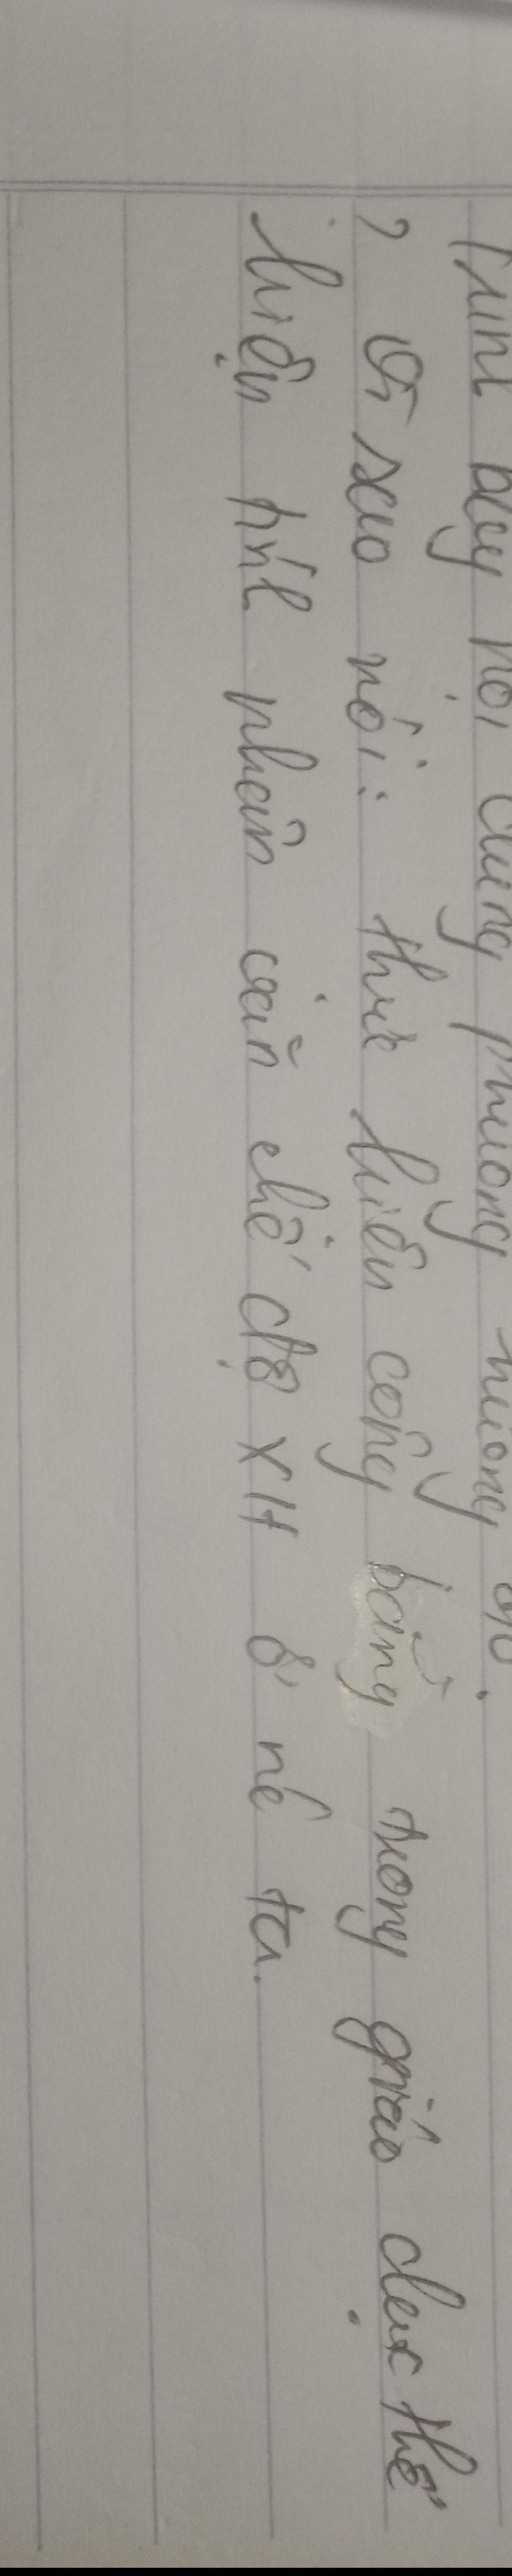 Trình bày nội dung phương hướng đó.
? Vì sao nói: thực hiện công bằng trong giáo dục thể
hiện tính nhân văn chế độ XH ở nc ta.